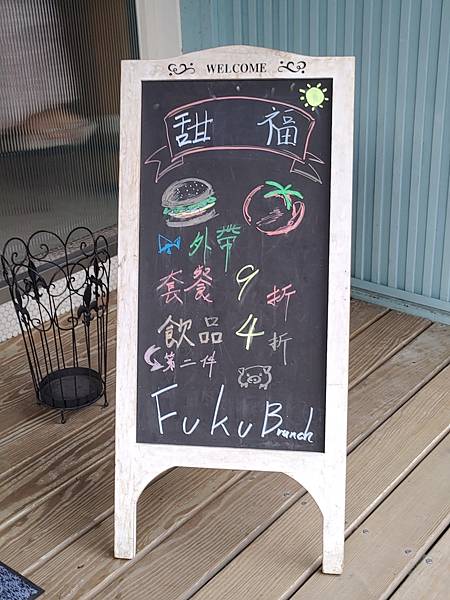 WELCOME
甜 福
外帶
套餐 9折
飲品 4折
第二件
Fuku Brunch